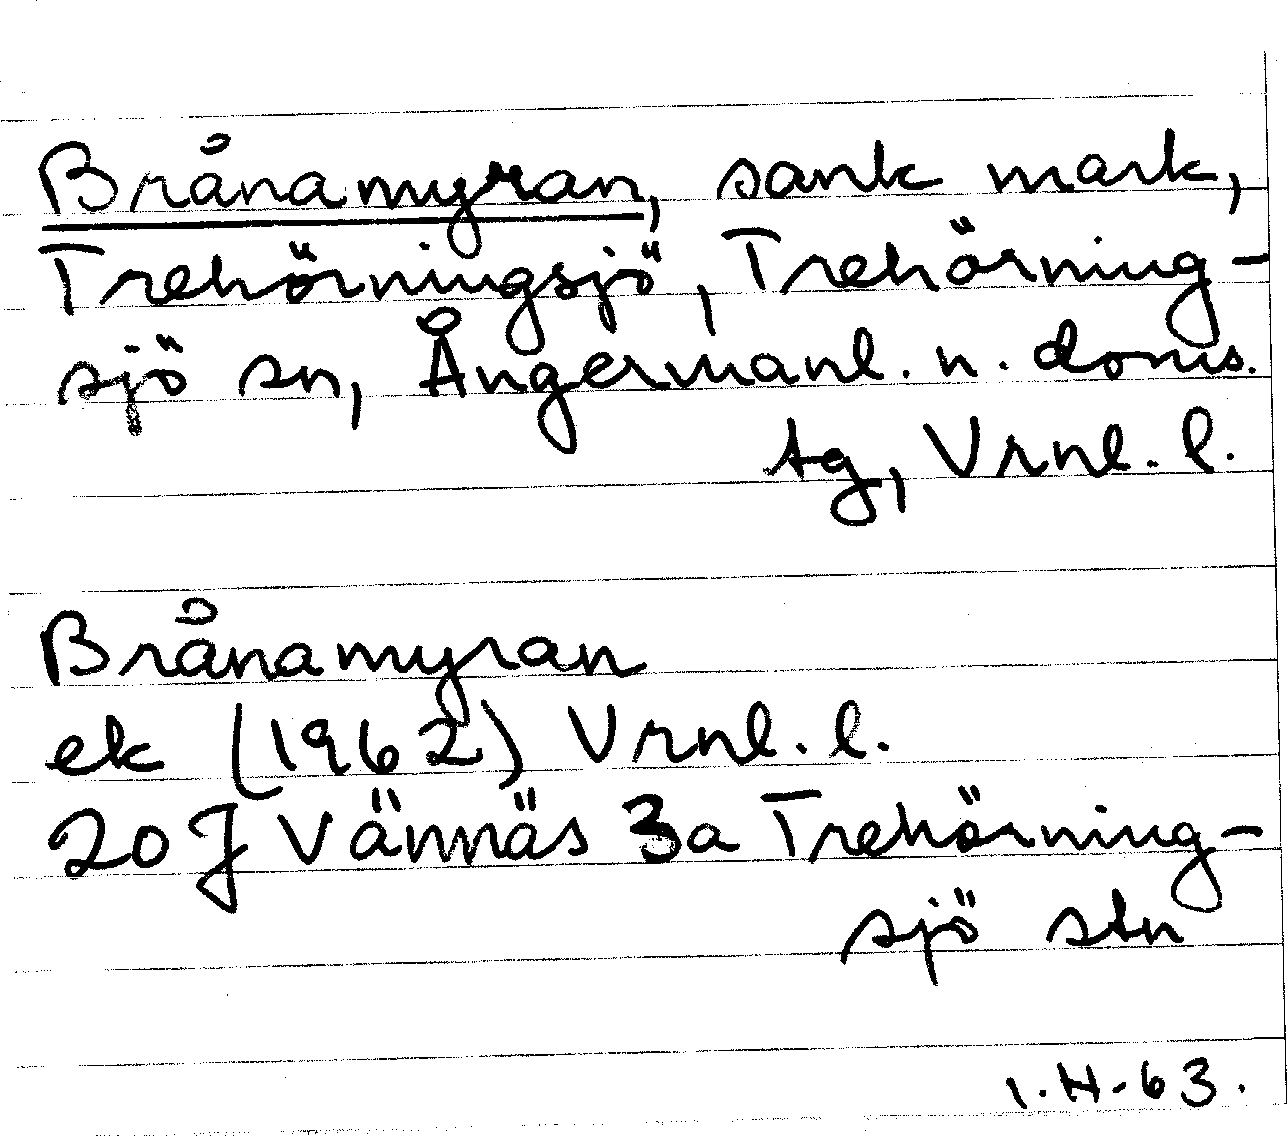 Brånamyran, sank mark,
Trehörningsjö, Trehörning-
sjö sn, Ångermanl. n. doms.
tg, Vrnl. l.
Brånamyran
ek (1962) Vrnl. l.
20 J Vännäs 3a Trehörning-
sjö stn
I.H-63.